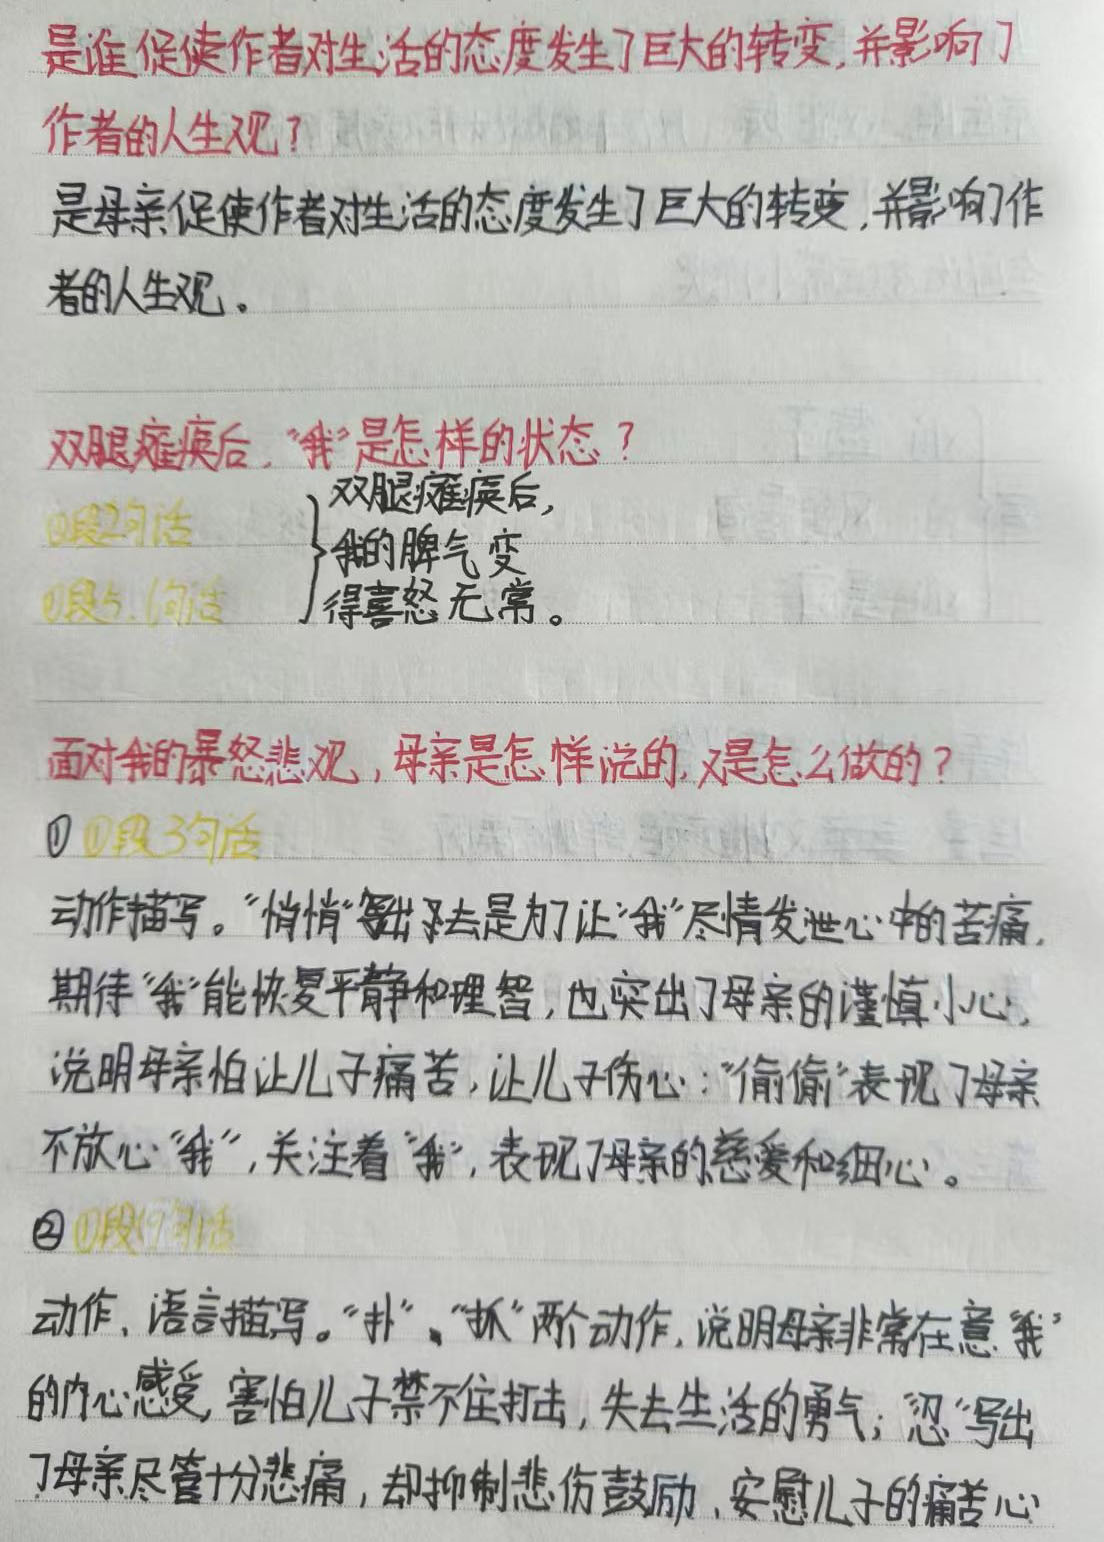 是谁促使作者对生活的态度发生了巨大的转变,并影响了
作者的人生观?
是母亲促使作者对生活的态度发生了巨大的转变,并影响了作
者的人生观。
双腿瘫痪后,“我”是怎样的状态?
双腿瘫痪后,
①段2句话
我的脾气变
①段5.6句话
得喜怒无常。
面对我的暴怒悲观,母亲是怎样说的,又是怎么做的?
① ①段3句话
动作描写。“悄悄”出去是为了让“我”尽情发泄心中的苦痛,
期待“我”能恢复平静和理智,也突出了母亲的谨慎小心,
说明母亲怕让儿子痛苦,让儿子伤心;“偷偷”表现了母亲
不放心“我”,关注着“我”,表现了母亲的慈爱和细心。
② ①段19句话
动作、语言描写。“扑”、“抓”两个动作,说明母亲非常在意“我”
的内心感受,害怕儿子禁不住打击,失去生活的勇气;“忍”写出
了母亲尽管十分悲痛,却抑制悲伤鼓励、安慰儿子的痛苦心